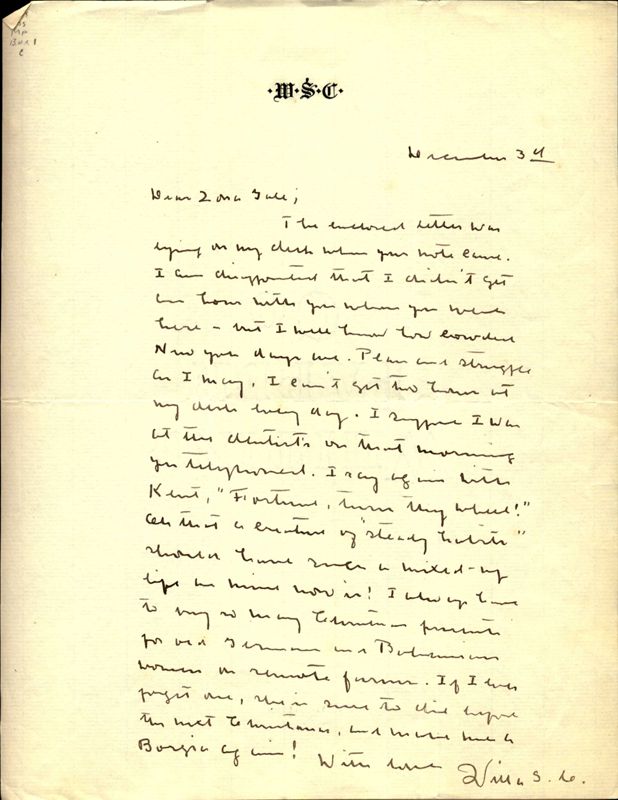 MP
Box 1
·W·S·C·
December 3rd
Dear Zona Gale;
The enclosed letter was
lying on my desk when your note came.
I am disappointed that I didn't get
an hour with you when you were
here – but I well know how crowded
New York days are. Plan and struggle
as I may, I can't get two hours at
my desk every day. I suppose I was
at the dentist's on that morning
you telephoned. I say again with
Kent, "Fortune, turn thy wheel!"
Oh that a creature of "steady habits"
should have such a mixed-up
life as mine now is! I always have
to buy so many Christmas presents
for old German and Bohemian
women on remote farms. If I ever
forget one, she is sure to die before
the next Christmas, and make me a
Borgia again! With love
Willa S. C.